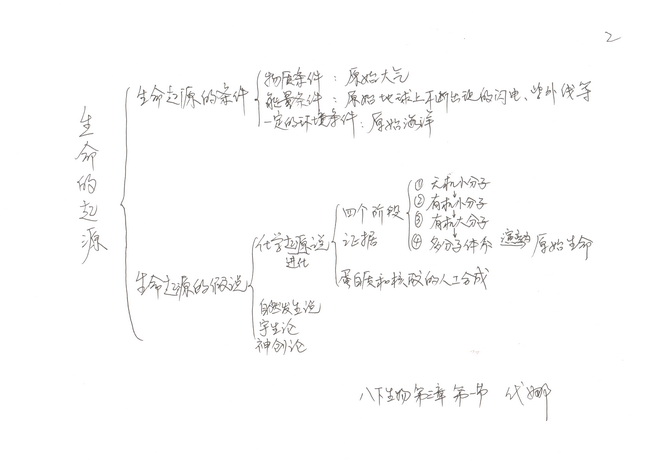 2
生命的起源
生命起源的条件
物质条件：原始大气
能量条件：原始地球上不断出现的闪电、紫外线等
一定的环境条件：原始海洋
生命起源的假说
化学起源说
进化
四个阶段
① 无机小分子
② 有机小分子
③ 有机大分子
④ 多分子体系 演变为 原始生命
证据
蛋白质和核酸的人工合成
自然发生说
宇生论
神创论
八下生物第三章 第一节 代娜